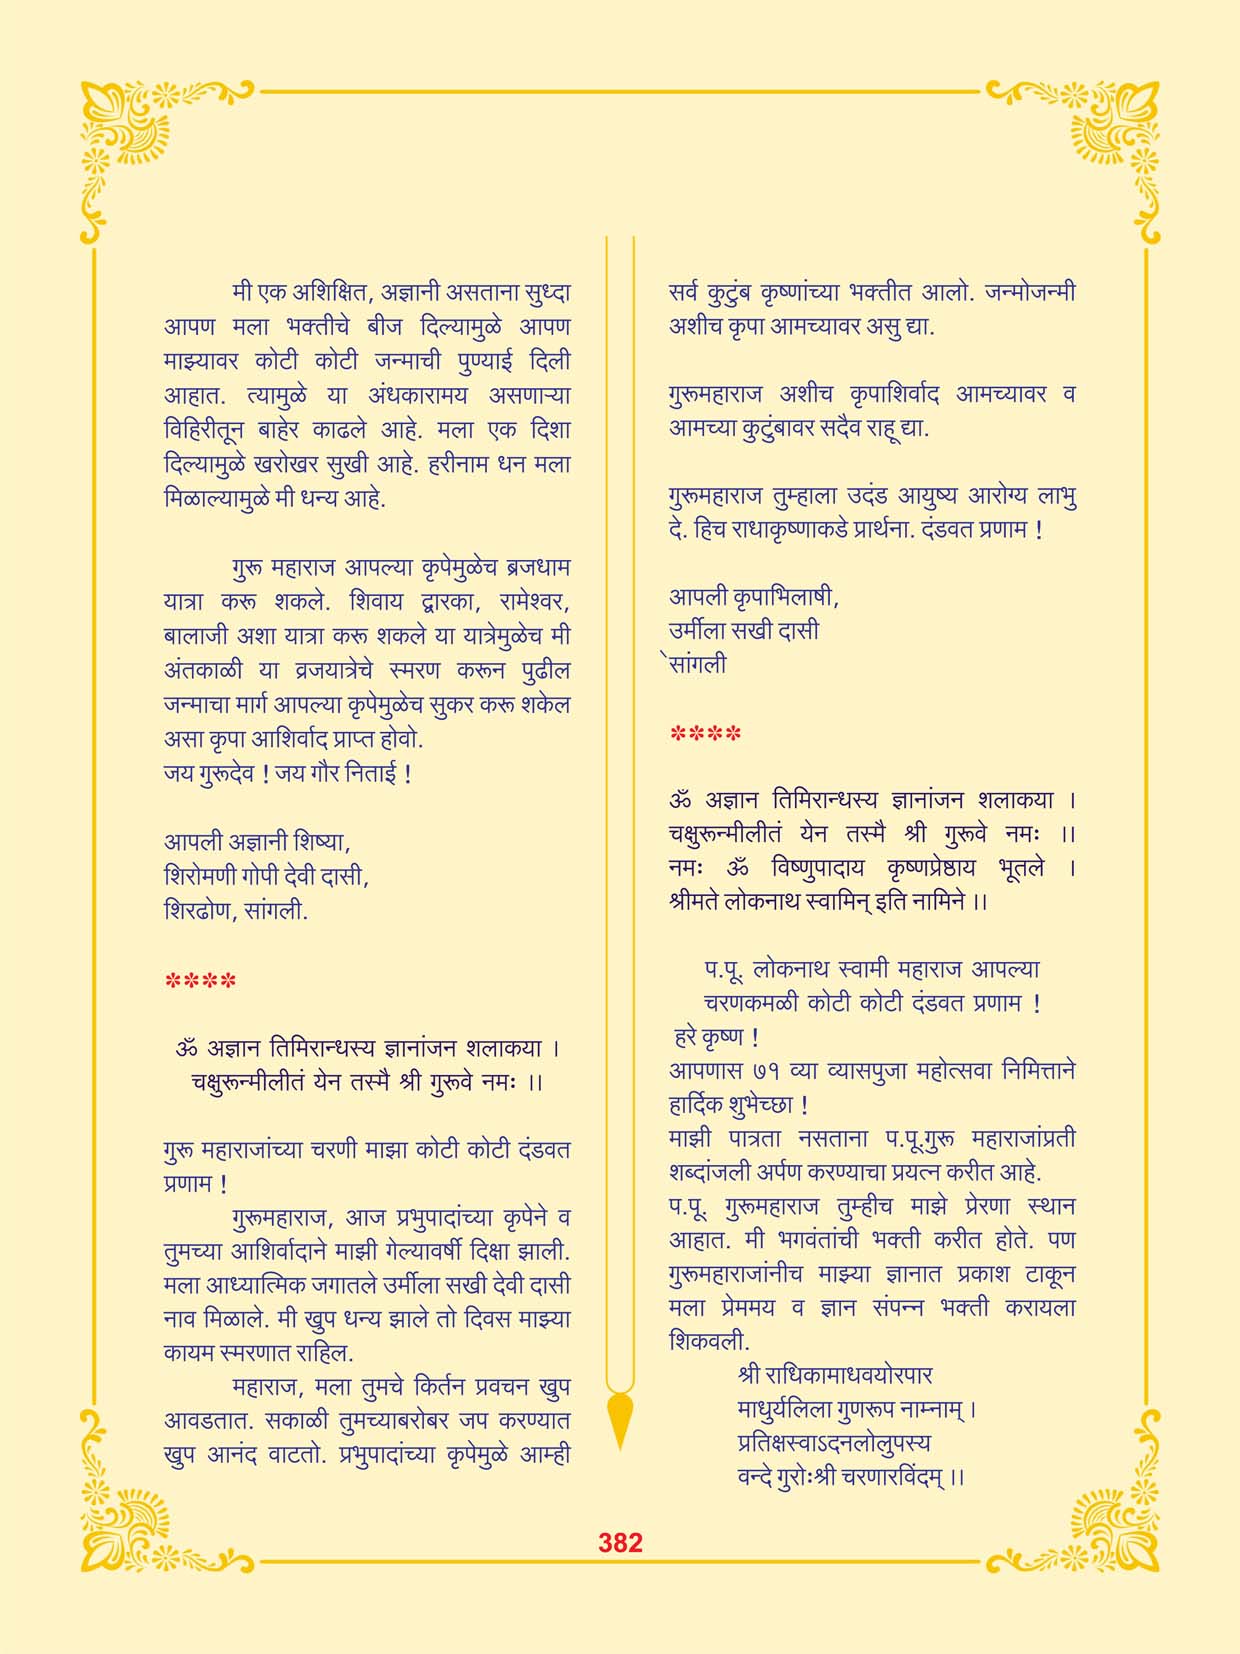 मी एक अशिक्षित, अज्ञानी असताना सुध्दा
आपण मला भक्तीचे बीज दिल्यामुळे आपण
माझ्यावर कोटी कोटी जन्माची पुण्याई दिली
आहात. त्यामुळे या अंधकारामय असणाऱ्या
विहिरीतून बाहेर काढले आहे. मला एक दिशा
दिल्यामुळे खरोखर सुखी आहे. हरीनाम धन मला
मिळाल्यामुळे मी धन्य आहे.
गुरू महाराज आपल्या कृपेमुळेच ब्रजधाम
यात्रा करू शकले. शिवाय द्वारका, रामेश्वर,
बालाजी अशा यात्रा करू शकले या यात्रेमुळेच मी
अंतकाळी या व्रजयात्रेचे स्मरण करून पुढील
जन्माचा मार्ग आपल्या कृपेमुळेच सुकर करू शकेल
असा कृपा आशिर्वाद प्राप्त होवो.
जय गुरूदेव ! जय गौर निताई !
आपली अज्ञानी शिष्या,
शिरोमणी गोपी देवी दासी,
शिरढोण, सांगली.
****
ॐ अज्ञान तिमिरान्धस्य ज्ञानांजन शलाकया ।
चक्षुरून्मीलीतं येन तस्मै श्री गुरूवे नमः ।।
गुरू महाराजांच्या चरणी माझा कोटी कोटी दंडवत
प्रणाम !
गुरूमहाराज, आज प्रभुपादांच्या कृपेने व
तुमच्या आशिर्वादाने माझी गेल्यावर्षी दिक्षा झाली.
मला आध्यात्मिक जगातले उर्मीला सखी देवी दासी
नाव मिळाले. मी खुप धन्य झाले तो दिवस माझ्या
कायम स्मरणात राहिल.
महाराज, मला तुमचे किर्तन प्रवचन खुप
आवडतात. सकाळी तुमच्याबरोबर जप करण्यात
खुप आनंद वाटतो. प्रभुपादांच्या कृपेमुळे आम्ही
सर्व कुटुंब कृष्णांच्या भक्तीत आलो. जन्मोजन्मी
अशीच कृपा आमच्यावर असु द्या.
गुरूमहाराज अशीच कृपाशिर्वाद आमच्यावर व
आमच्या कुटुंबावर सदैव राहू द्या.
गुरूमहाराज तुम्हाला उदंड आयुष्य आरोग्य लाभु
दे. हिच राधाकृष्णाकडे प्रार्थना. दंडवत प्रणाम !
आपली कृपाभिलाषी,
उर्मीला सखी दासी
े सांगली
****
ॐ अज्ञान तिमिरान्धस्य ज्ञानांजन शलाकया ।
चक्षुरून्मीलीतं येन तस्मै श्री गुरूवे नमः ।।
नमः ॐ विष्णुपादाय कृष्णप्रेष्ठाय भूतले ।
श्रीमते लोकनाथ स्वामिन् इति नामिने ।।
प.पू. लोकनाथ स्वामी महाराज आपल्या
चरणकमळी कोटी कोटी दंडवत प्रणाम !
हरे कृष्ण !
आपणास ७१ व्या व्यासपुजा महोत्सवा निमित्ताने
हार्दिक शुभेच्छा !
माझी पात्रता नसताना प.पू.गुरू महाराजांप्रती
शब्दांजली अर्पण करण्याचा प्रयत्न करीत आहे.
प.पू. गुरूमहाराज तुम्हीच माझे प्रेरणा स्थान
आहात. मी भगवंतांची भक्ती करीत होते. पण
गुरूमहाराजांनीच माझ्या ज्ञानात प्रकाश टाकून
मला प्रेममय व ज्ञान संपन्न भक्ती करायला
शिकवली.
श्री राधिकामाधवयोरपार
माधुर्यलिला गुणरूप नाम्नाम् ।
प्रतिक्षस्वाऽदनलोलुपस्य
वन्दे गुरोःश्री चरणारविंदम् ।।
382